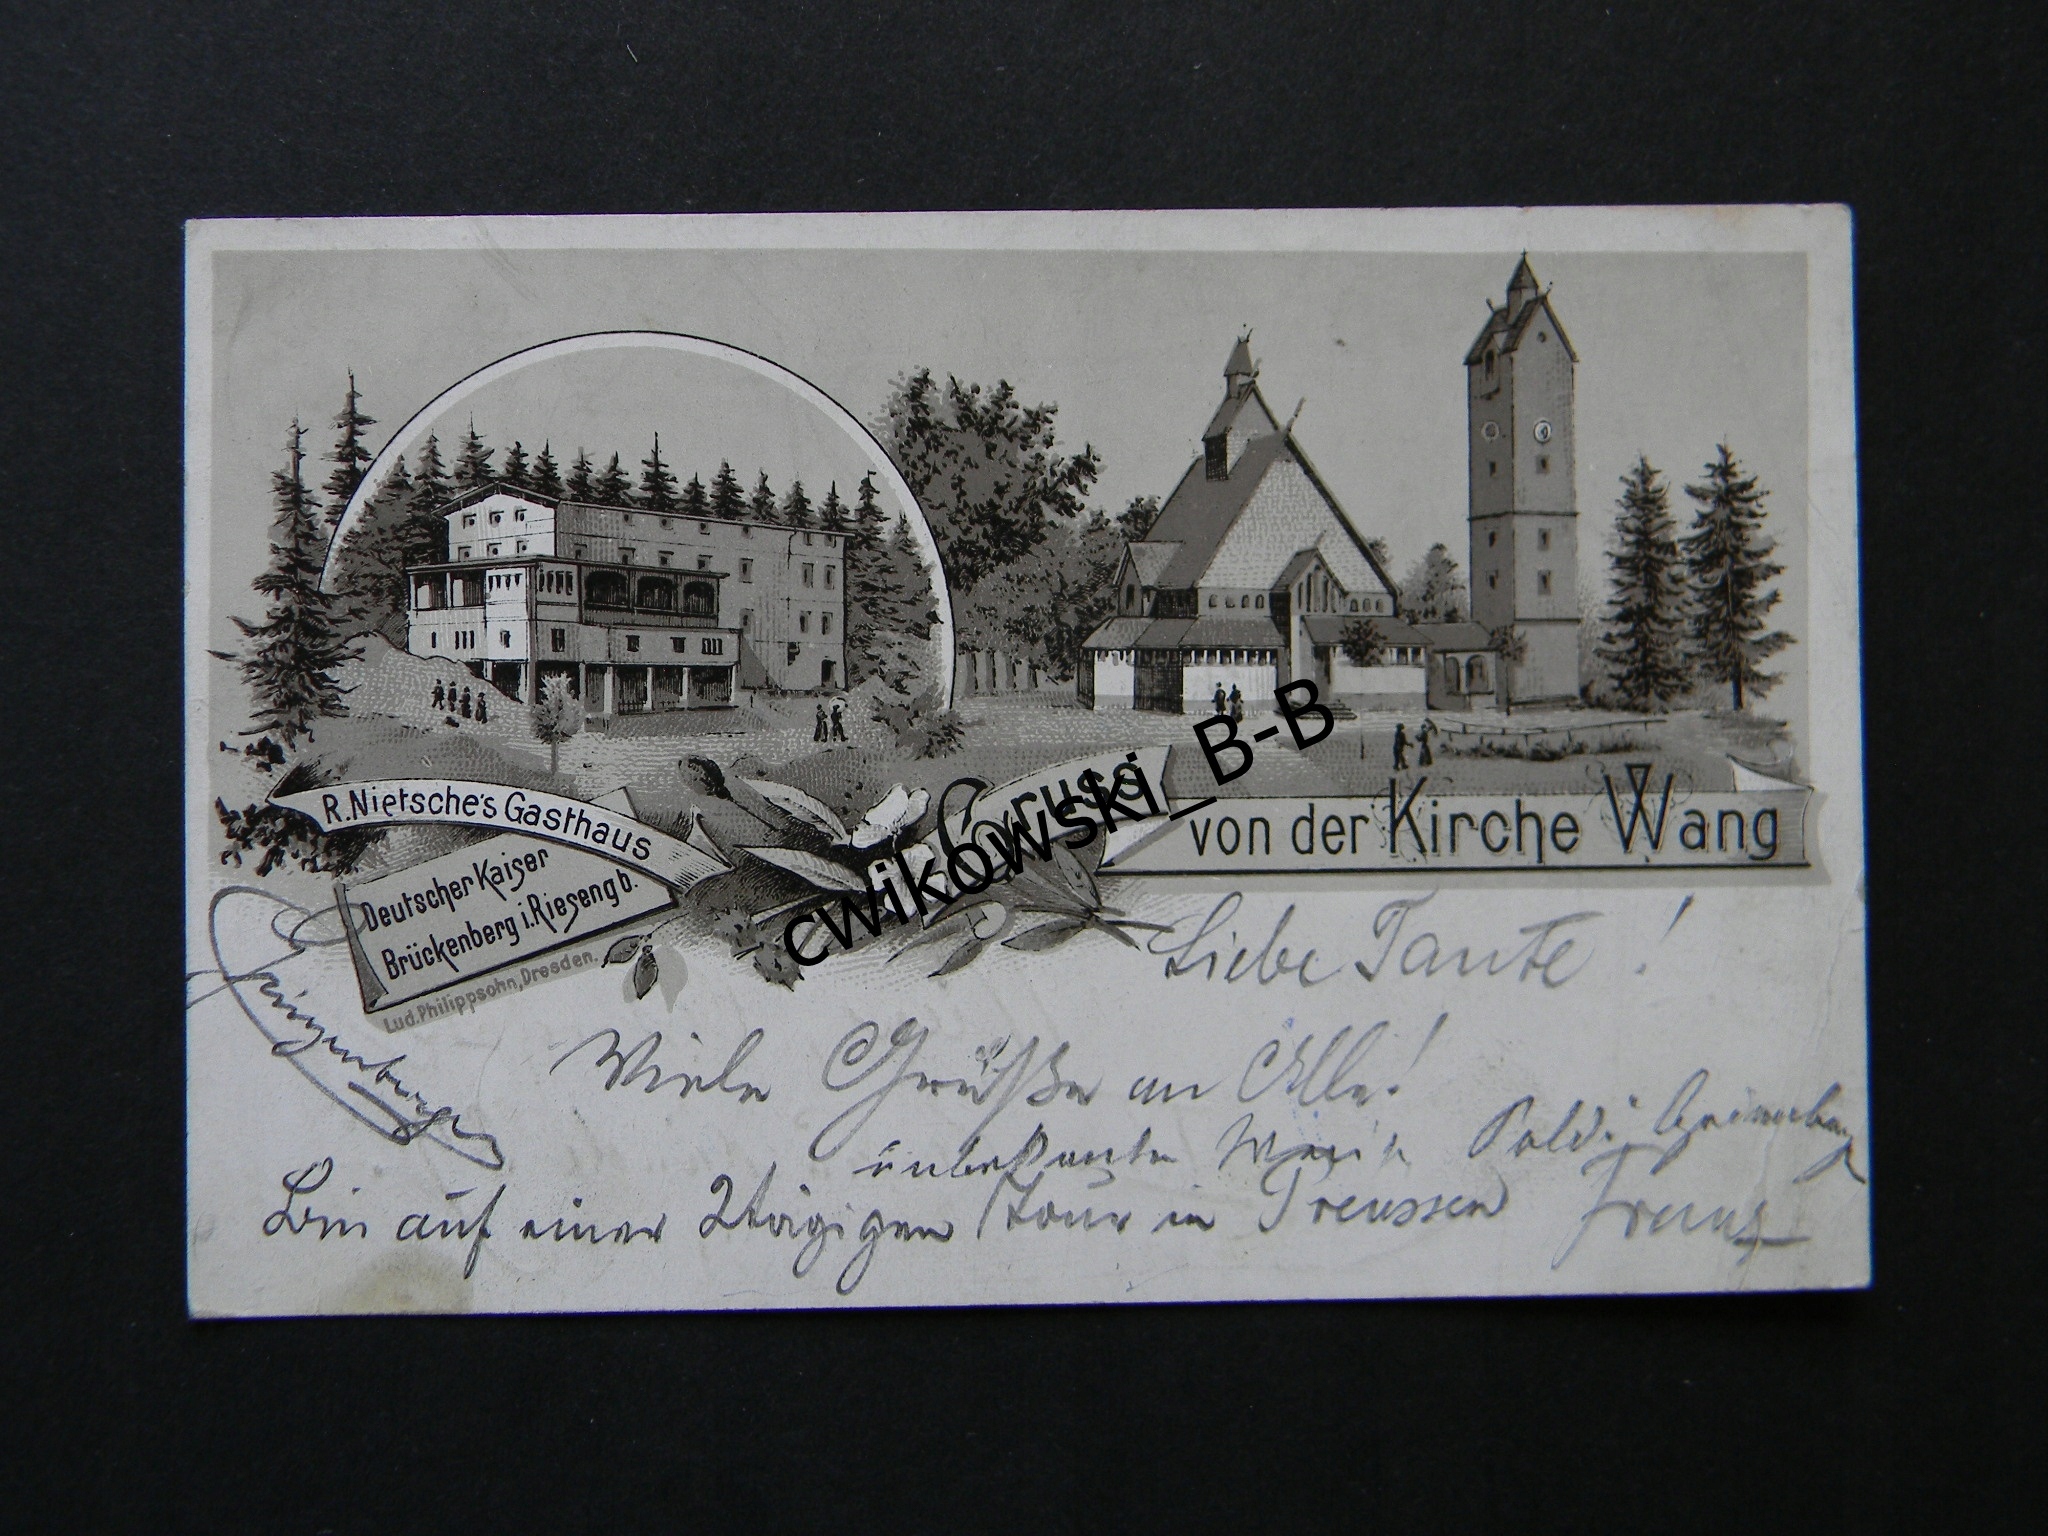 R. Nietsche's Gasthaus
Deutscher Kaiser
Brückenberg i. Riesengb.
Lud. Philippsohn, Dresden.
Gruss
von der Kirche Wang
cwikowski_B-B
Liebe Tante!
Viele Grüße an Alle!
unbekannter Weise Poldi
Bin auf einer 2tägigen Tour in Preussen Franz